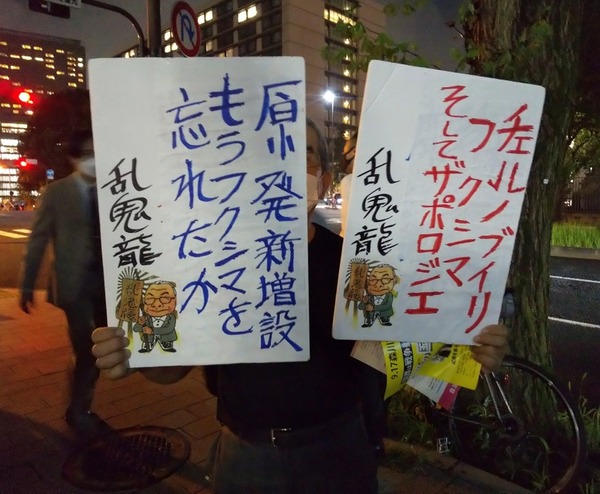 原発新増設
もうフクシマを
忘れたか
乱鬼龍
チェルノブイリ
フクシマ
そしてザポロジエ
乱鬼龍